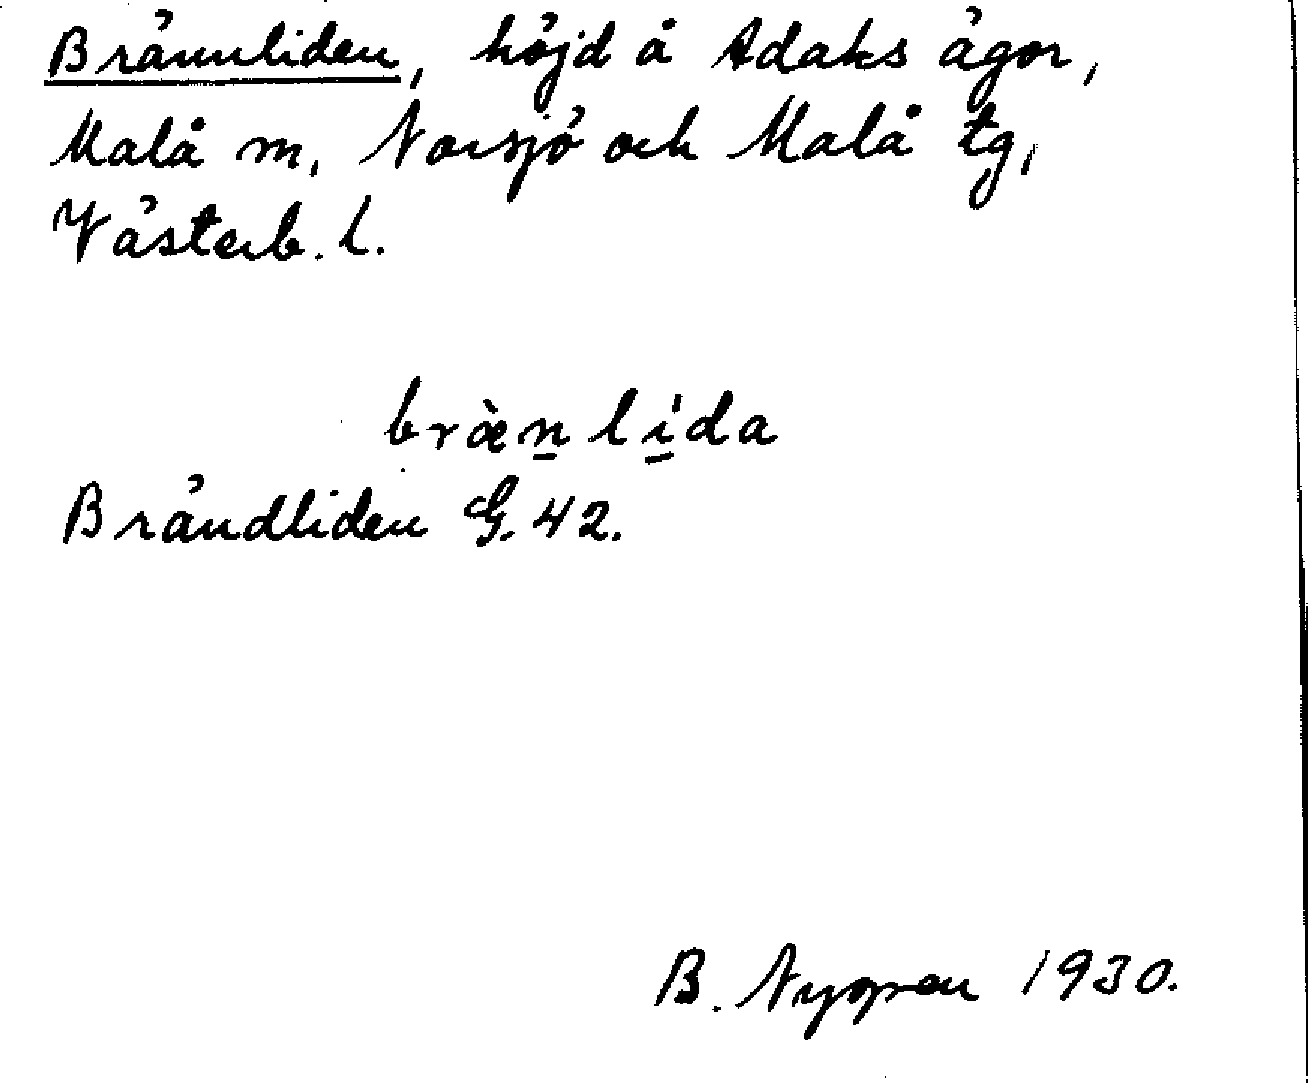 Brännliden, höjd å Adaks ägor,
Malå sn, Norsjö och Malå tg,
Västerb. l.
bræ̀n̲ lí̲da
Brändliden G. 42.
B. Nygren 1930.